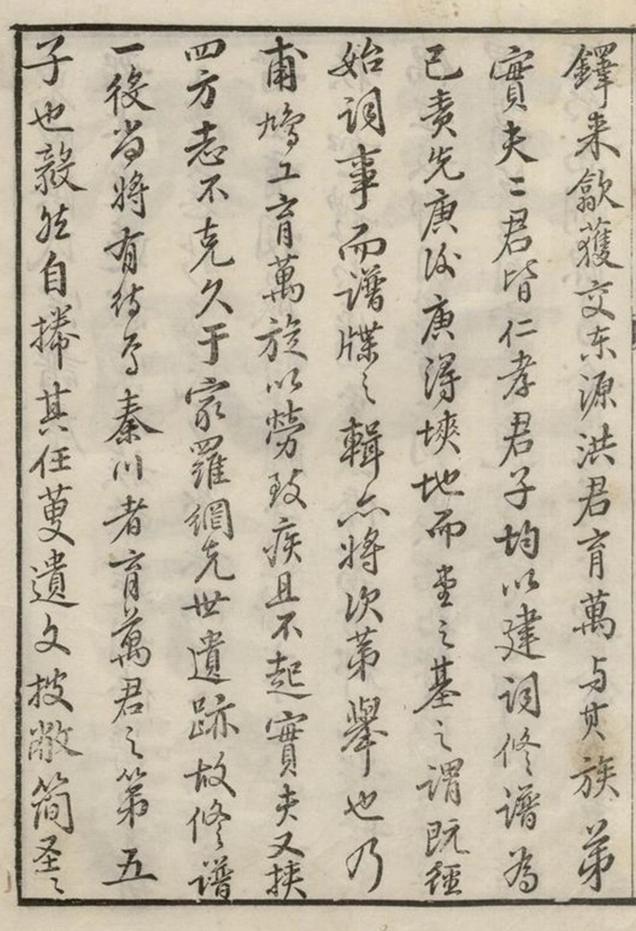 鐸来歙獲交东源洪君育萬与其族弟
實夫二君皆仁孝君子均以建祠修譜為
己责先庚後庚得塽地而堂之基之謂既經
始祠事而譜牒之輯亦将次第舉也乃
甫鳩工育萬旋以勞致疾且不起實夫又挟
四方志不克久于家羅綱先世遺跡故修谱
一役尚将有待焉秦川者育萬君之第五
子也毅然自撐其任蒐遺文披敝简圣之